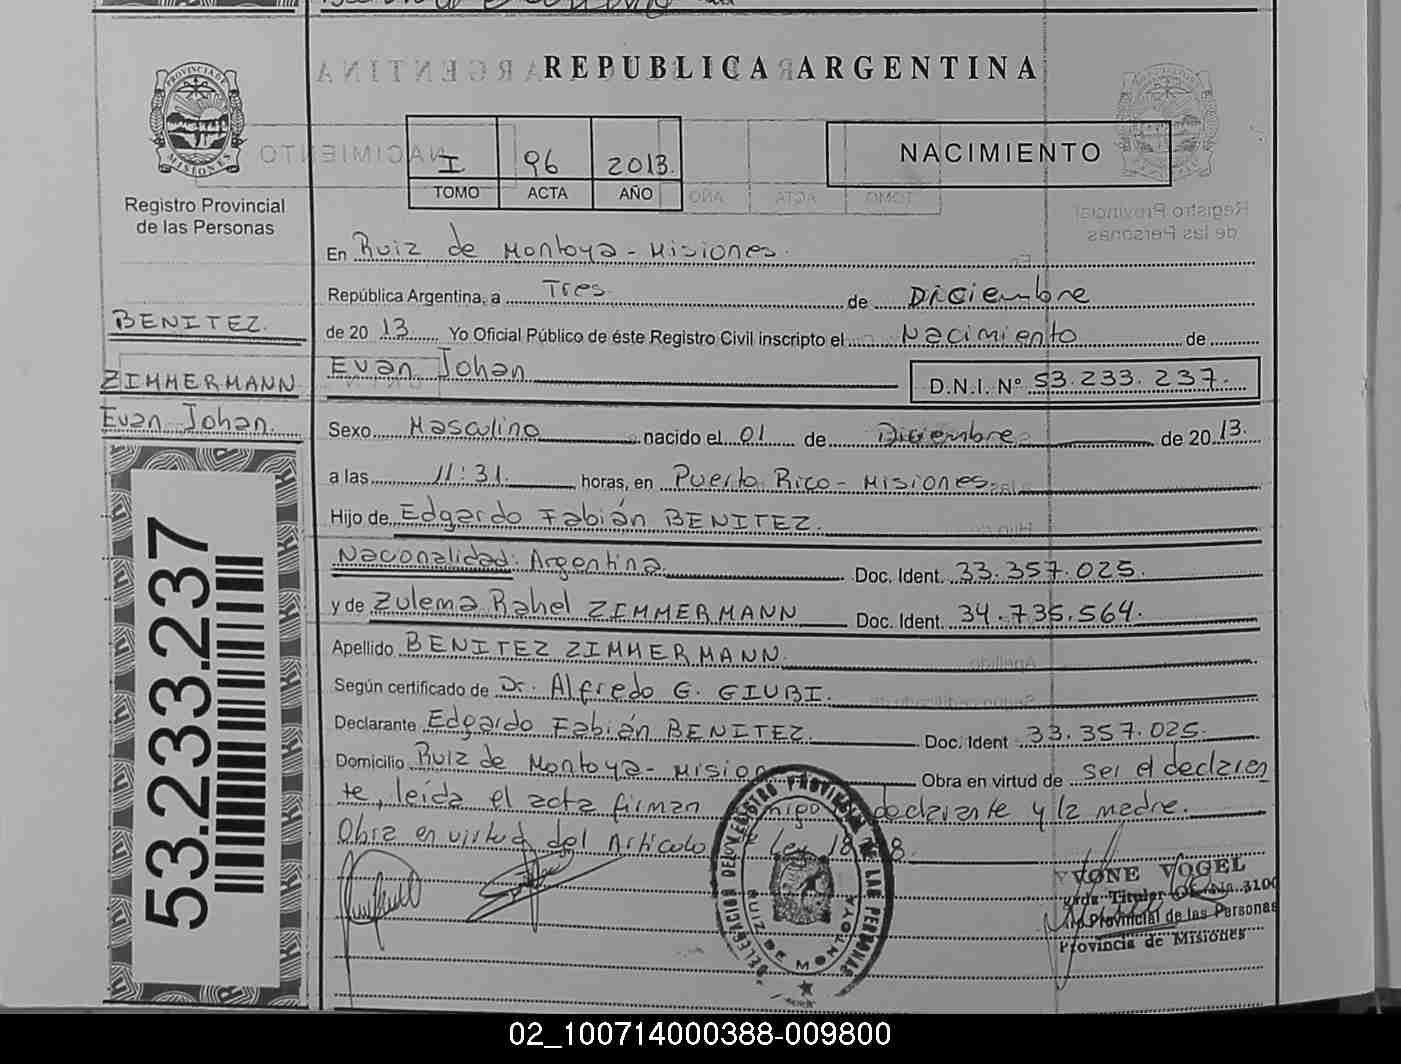 REPUBLICA ARGENTINA
PROVINCIA DE
MISIONES
Registro Provincial
de las Personas
I 96 2013
TOMO ACTA AÑO
NACIMIENTO
En Ruiz de Montoya - Misiones.
República Argentina, a Tres de Diciembre
de 2013. Yo Oficial Público de éste Registro Civil inscripto el Nacimiento de
Evan Johan D.N.I. Nº 53.233.237.
BENITEZ
ZIMMERMANN
Evan Johan.
53.233.237
Sexo Masculino nacido el 01 de Diciembre de 2013.
a las 11:31. horas, en Puerto Rico - Misiones.
Hijo de Edgardo Fabián BENITEZ.
Nacionalidad: Argentina. Doc. Ident. 33.357.025.
y de Zulema Rahel ZIMMERMANN Doc. Ident. 34.735.564.
Apellido BENITEZ ZIMMERMANN.
Según certificado de Dr. Alfredo G. GIUBI.
Declarante Edgardo Fabián BENITEZ. Doc. Ident 33.357.025.
Domicilio Ruiz de Montoya - Mision Obra en virtud de ser el declaran
te, leída el acta firman declarante y la madre.
Obra en virtud del Artículo Ley
DELEGACION DEL REGISTRO PROVINCIAL DE LAS PERSONAS
RUIZ DE MONTOYA
YVONE VOGEL
Titular
Provincial de las Personas
Provincia de Misiones
02_100714000388-009800